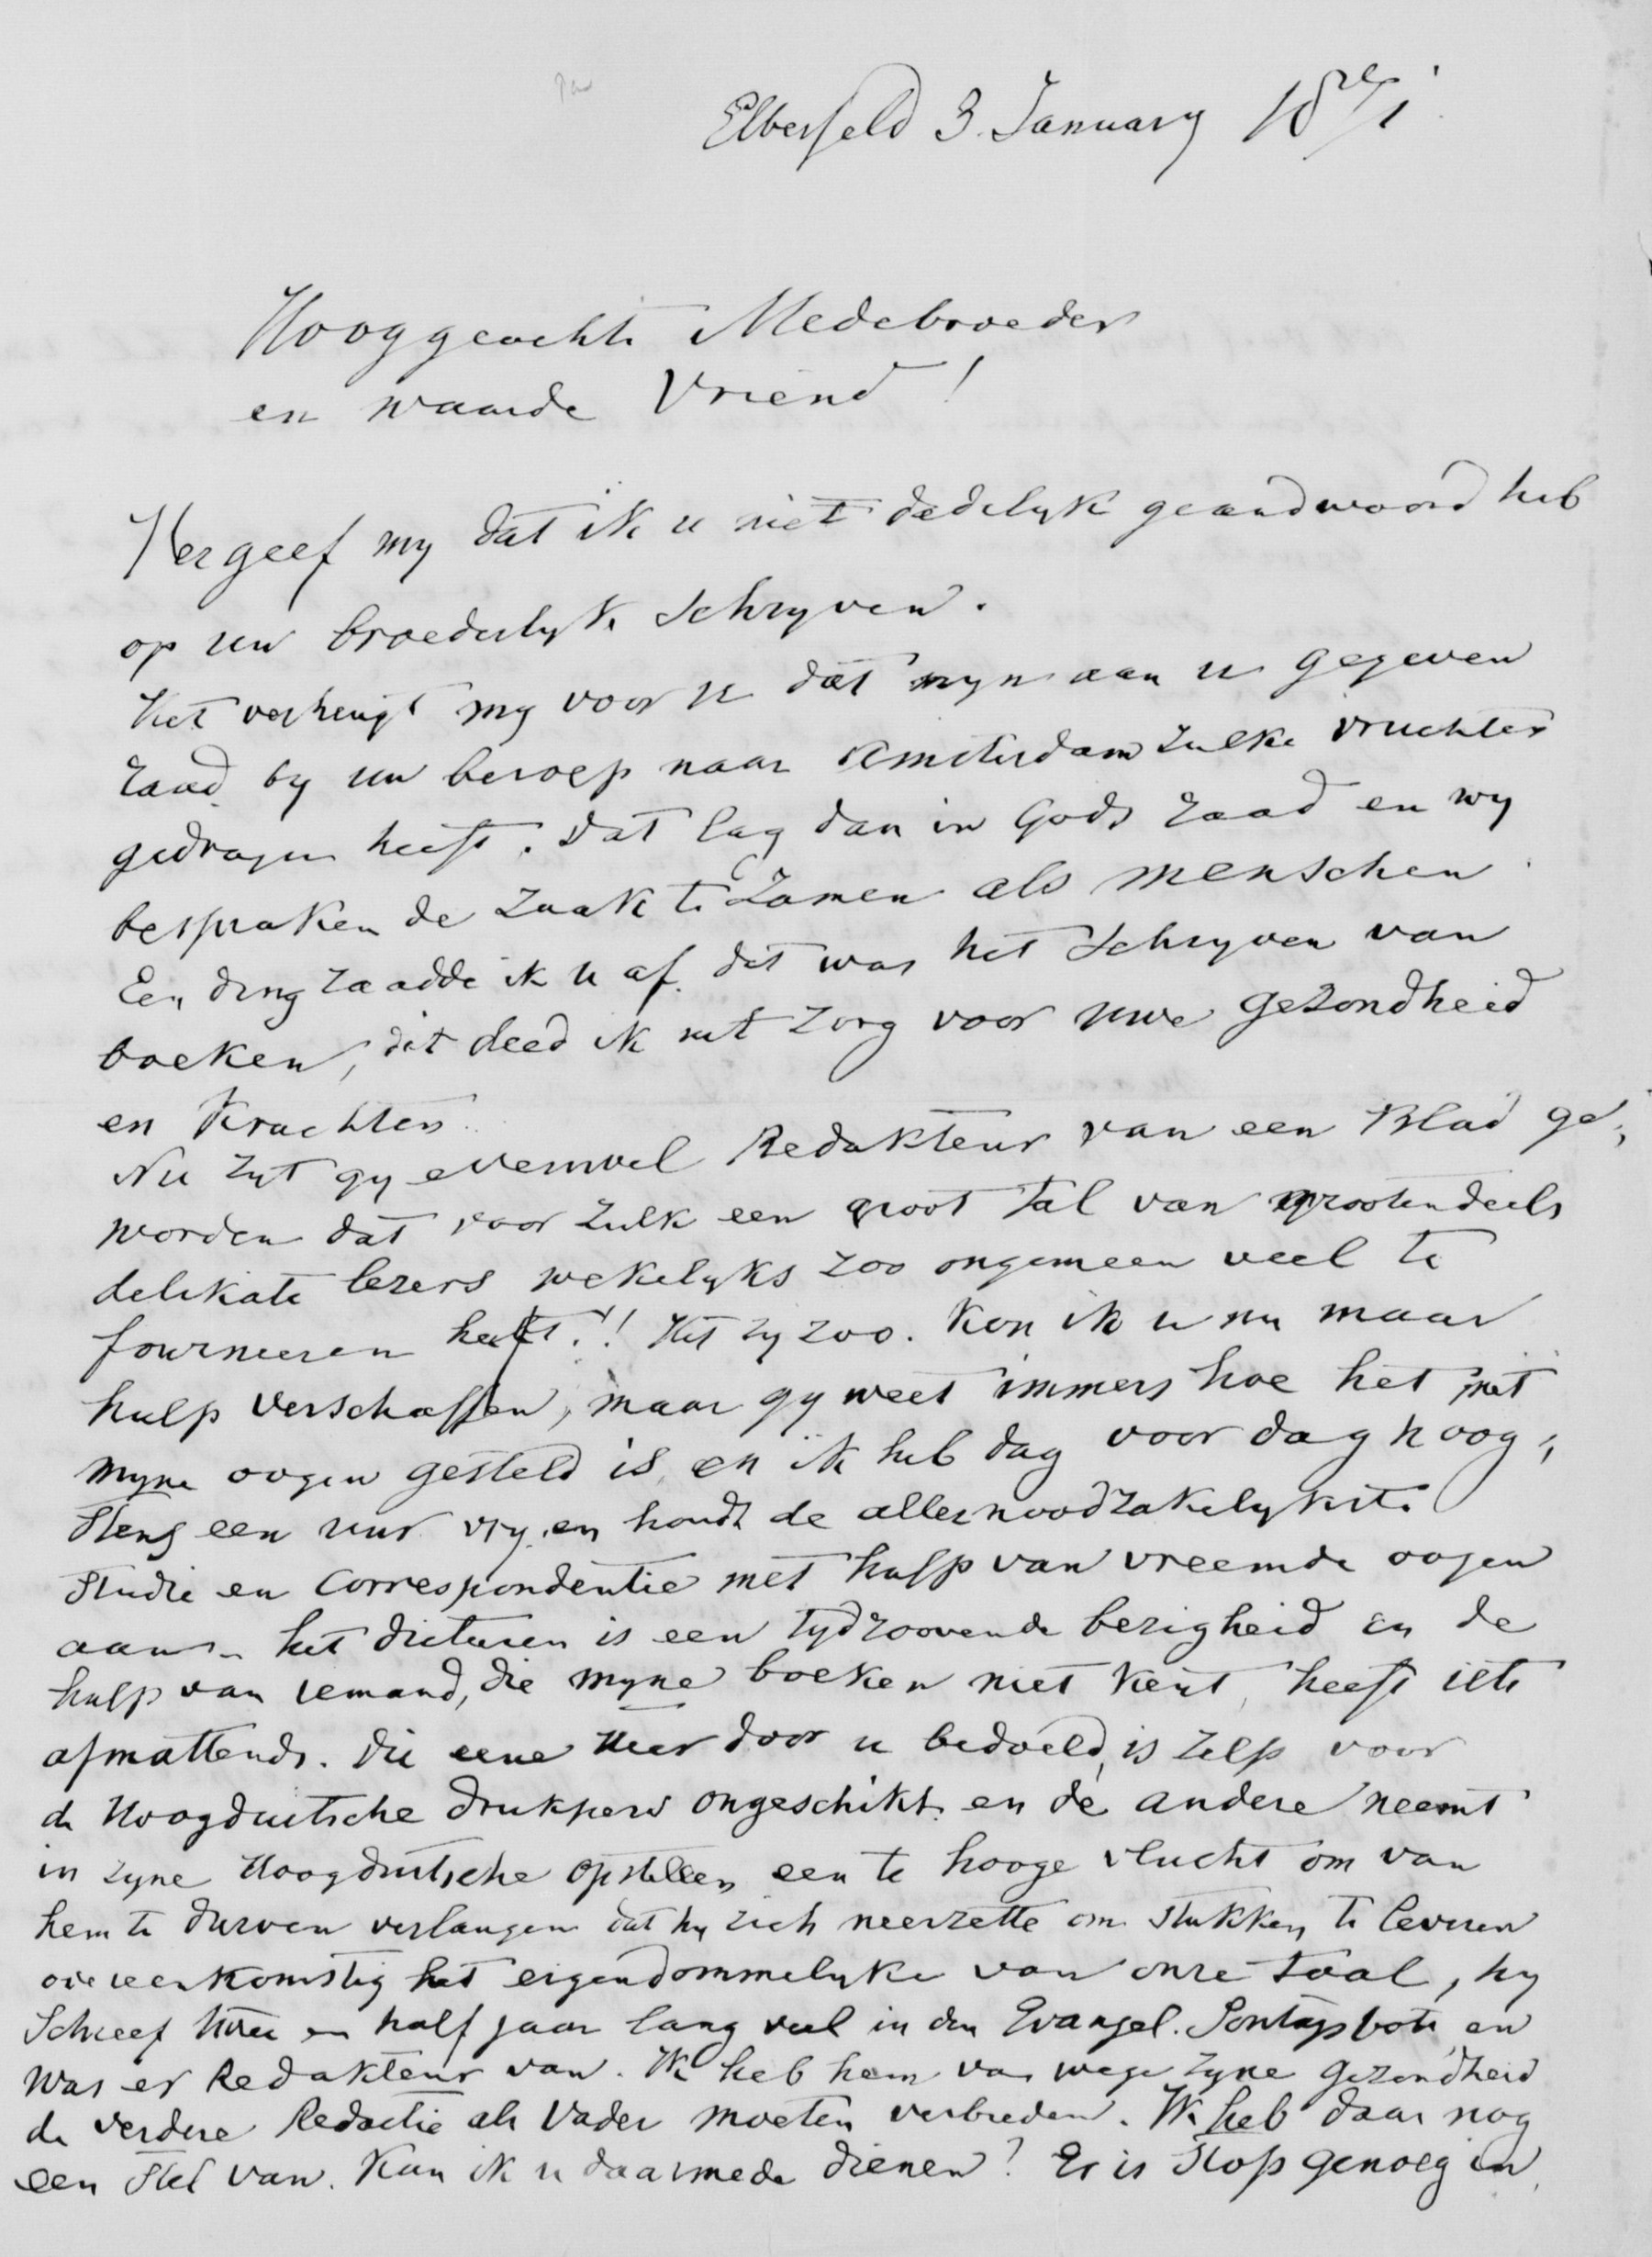 Elberfeld 3. January 1871.
Hooggeachte Medebroeder
en waarde Vriend!
Vergeef my dat ik u niet dadelyk geandwoord heb
op uw broederlyk schryven.
Het verheugt my voor u dat myn aan u gegeven
raad by uw beroep naar Amsterdam zulke vruchten
gedragen heeft. Dat lag dan in Gods raad en wy
bespraken de zaak te zamen als menschen.
Een ding raadde ik u af. dat was het schryven van
boeken, dit deed ik uit zorg voor uwe gezondheid
en krachten.
Nu zyt gy evenwel Redakteur van een Blad ge-
worden dat voor zulk een groot tal van grootendeels
delikate lezers wekelyks zoo ongemeen veel te
fourneeren heeft.!! Het zy zoo. Kon ik u nu maar
hulp verschaffen, maar gy weet immers hoe het met
myne oogen gesteld is, en ik heb dag voor dag hoog-
stens een uur vry. en houdt de allernoodzakelykste
studie en Correspondentie met hulp van vreemde oogen
aan. het dicteren is een tydroovende bezigheid en de
hulp van iemand, die myne boeken niet kent, heeft iets
afmattends. Die eene Heer door u bedoeld, is zelf voor
de Hoogduitsche drukpers ongeschikt en de andere neemt
in zyne Hoogduitsche opstellen een te hooge vlucht om van
hem te durven verlangen dat hy zich neerzette om stukken te leveren
overeenkomstig het eigendommelyke van onze taal, hy
schreef twee en half jaar lang veel in den Evangel. Sontagsbote en
was er Redakteur van. Ik heb hem van wege zyne gezondheid
de verdere Redactie als Vader moeten verbieden. Ik heb daar nog
een stel van. Kan ik u daarmede dienen? Er is stof genoeg in